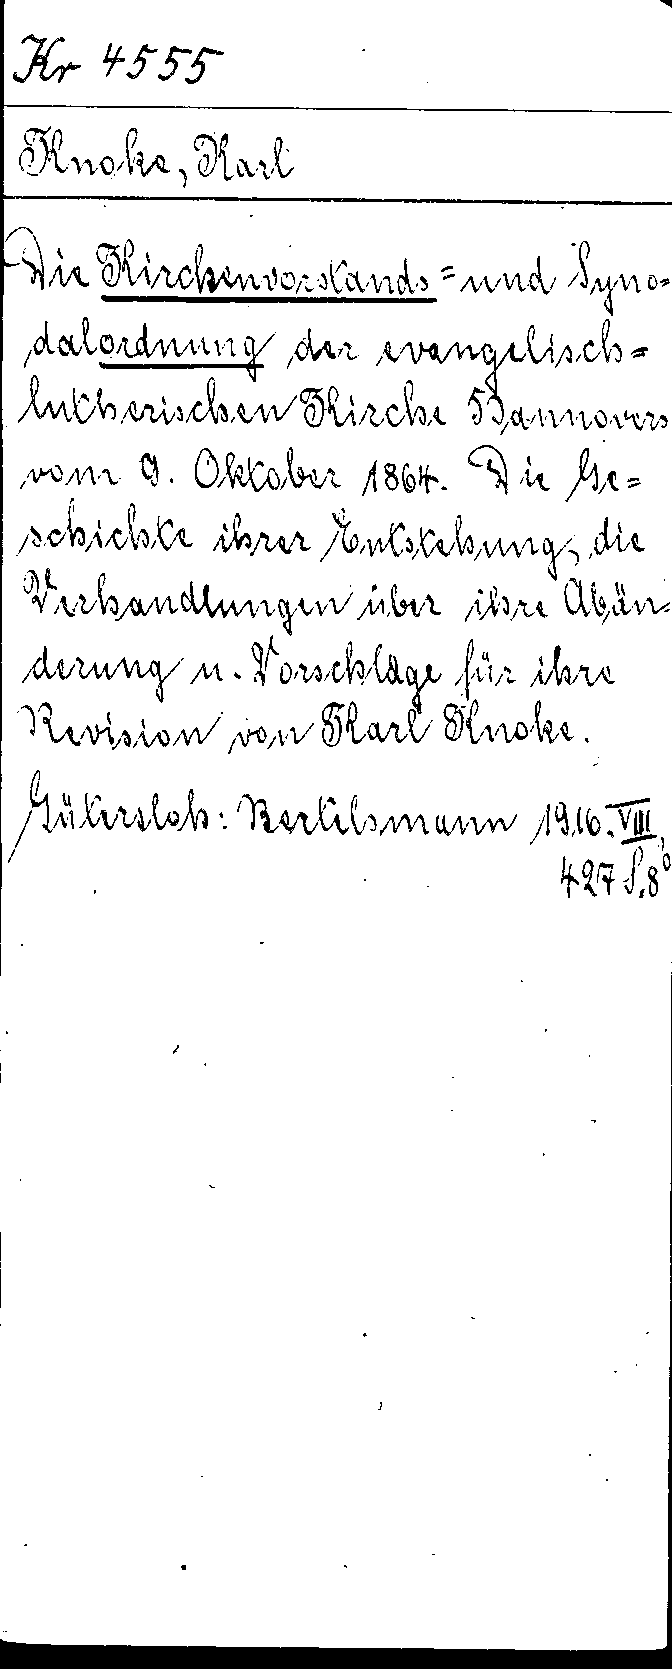 Kr 4555
Knoke, Karl
Die Kirchenvorstands= und Syno=
dalordnung der evangelisch=
lutherischen Kirche Hannovers
vom 9. Oktober 1864. Die Ge=
schichte ihrer Entstehung, die
Verhandlungen über ihre Abän=
derung u. Vorschläge für ihre
Revision von Karl Knoke.
Gütersloh: Bertelsmann 1910. VIII,
427 S. 8°